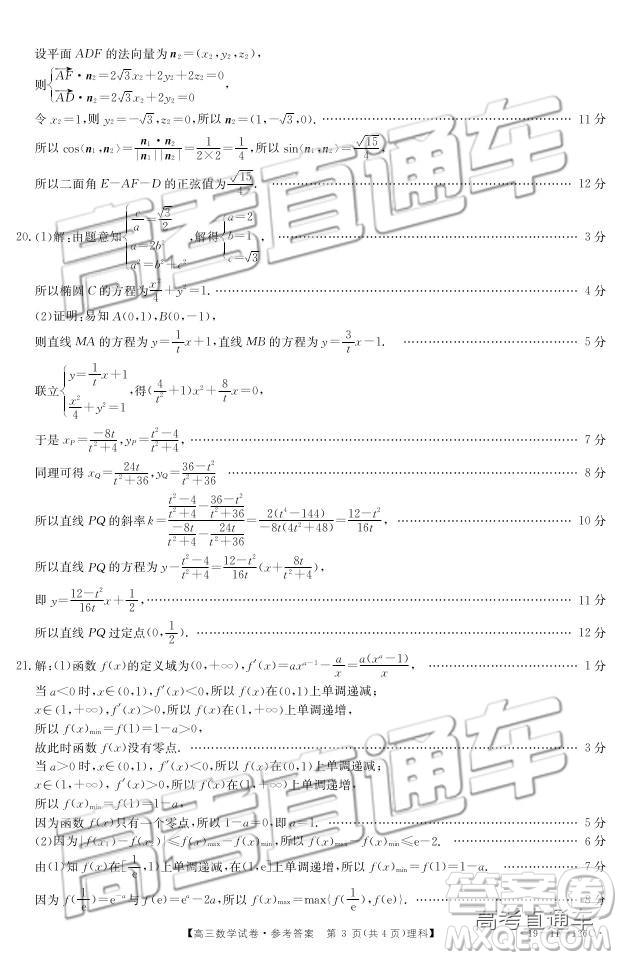 设平面 ADF 的法向量为 n₂=(x₂,y₂,z₂),
则{AF⃗·n₂=2√3x₂+2y₂+2z₂=0
AD⃗·n₂=2√3x₂+2y₂=0 ,
令 x₂=1,则 y₂=-√3,z₂=0,所以 n₂=(1,-√3,0). 11 分
所以 cos⟨n₁,n₂⟩=n₁·n₂/|n₁||n₂|=1/(2×2)=1/4,所以 sin⟨n₁,n₂⟩=√15/4,
所以二面角 E-AF-D 的正弦值为√15/4. 12 分
20.(1)解:由题意知{c/a=√3/2
a=2b²
a²=b²+c² ,解得{a=2
b=1
c=√3 , 3 分
所以椭圆 C 的方程为x²/4+y²=1. 4 分
(2)证明:易知 A(0,1),B(0,-1),
则直线 MA 的方程为 y=1/t x+1,直线 MB 的方程为 y=3/t x-1. 5 分
联立{y=1/t x+1
x²/4+y²=1 ,得(4/t²+1)x²+8/t x=0,
于是 x_P=-8t/(t²+4),y_P=(t²-4)/(t²+4), 7 分
同理可得 x_Q=24t/(t²+36),y_Q=(36-t²)/(t²+36) 8 分
所以直线 PQ 的斜率 k=((t²-4)/(t²+4)-(36-t²)/(t²+36))/(-8t/(t²+4)-24t/(t²+36))=2(t⁴-144)/(-8t(4t²+48))=(12-t²)/16t, 10 分
所以直线 PQ 的方程为 y-(t²-4)/(t²+4)=(12-t²)/16t(x+8t/(t²+4)),
即 y=(12-t²)/16t x+1/2, 11 分
所以直线 PQ 过定点(0,1/2). 12 分
21.解:(1)函数 f(x)的定义域为(0,+∞),f′(x)=axᵃ⁻¹-a/x=a(xᵃ-1)/x, 1 分
当 a<0 时,x∈(0,1),f′(x)<0,所以 f(x)在(0,1)上单调递减;
x∈(1,+∞),f′(x)>0,所以 f(x)在(1,+∞)上单调递增,
所以 f(x)min=f(1)=1-a>0,
故此时函数 f(x)没有零点. 3 分
当 a>0 时,x∈(0,1),f′(x)<0,所以 f(x)在(0,1)上单调递减;
x∈(1,+∞),f′(x)>0,所以 f(x)在(1,+∞)上单调递增,
所以 f(x)min=f(1)=1-a,
因为函数 f(x)只有一个零点,所以 1-a=0,即 a=1. 5 分
(2)因为|f(x₁)-f(x₂)|≤f(x)max-f(x)min,所以 f(x)max-f(x)min≤e-2. 6 分
由(1)知 f(x)在[1/e,1)上单调递减,在(1,e]上单调递增,所以 f(x)min=f(1)=1-a. 7 分
因为 f(1/e)=e⁻ᵃ+a与 f(e)=eᵃ-a,所以 f(x)max=max{f(1/e),f(e)}. 8 分
【高三数学试卷·参考答案 第 3 页(共 4 页)理科】
高考直通车
答案圈
高考直通车